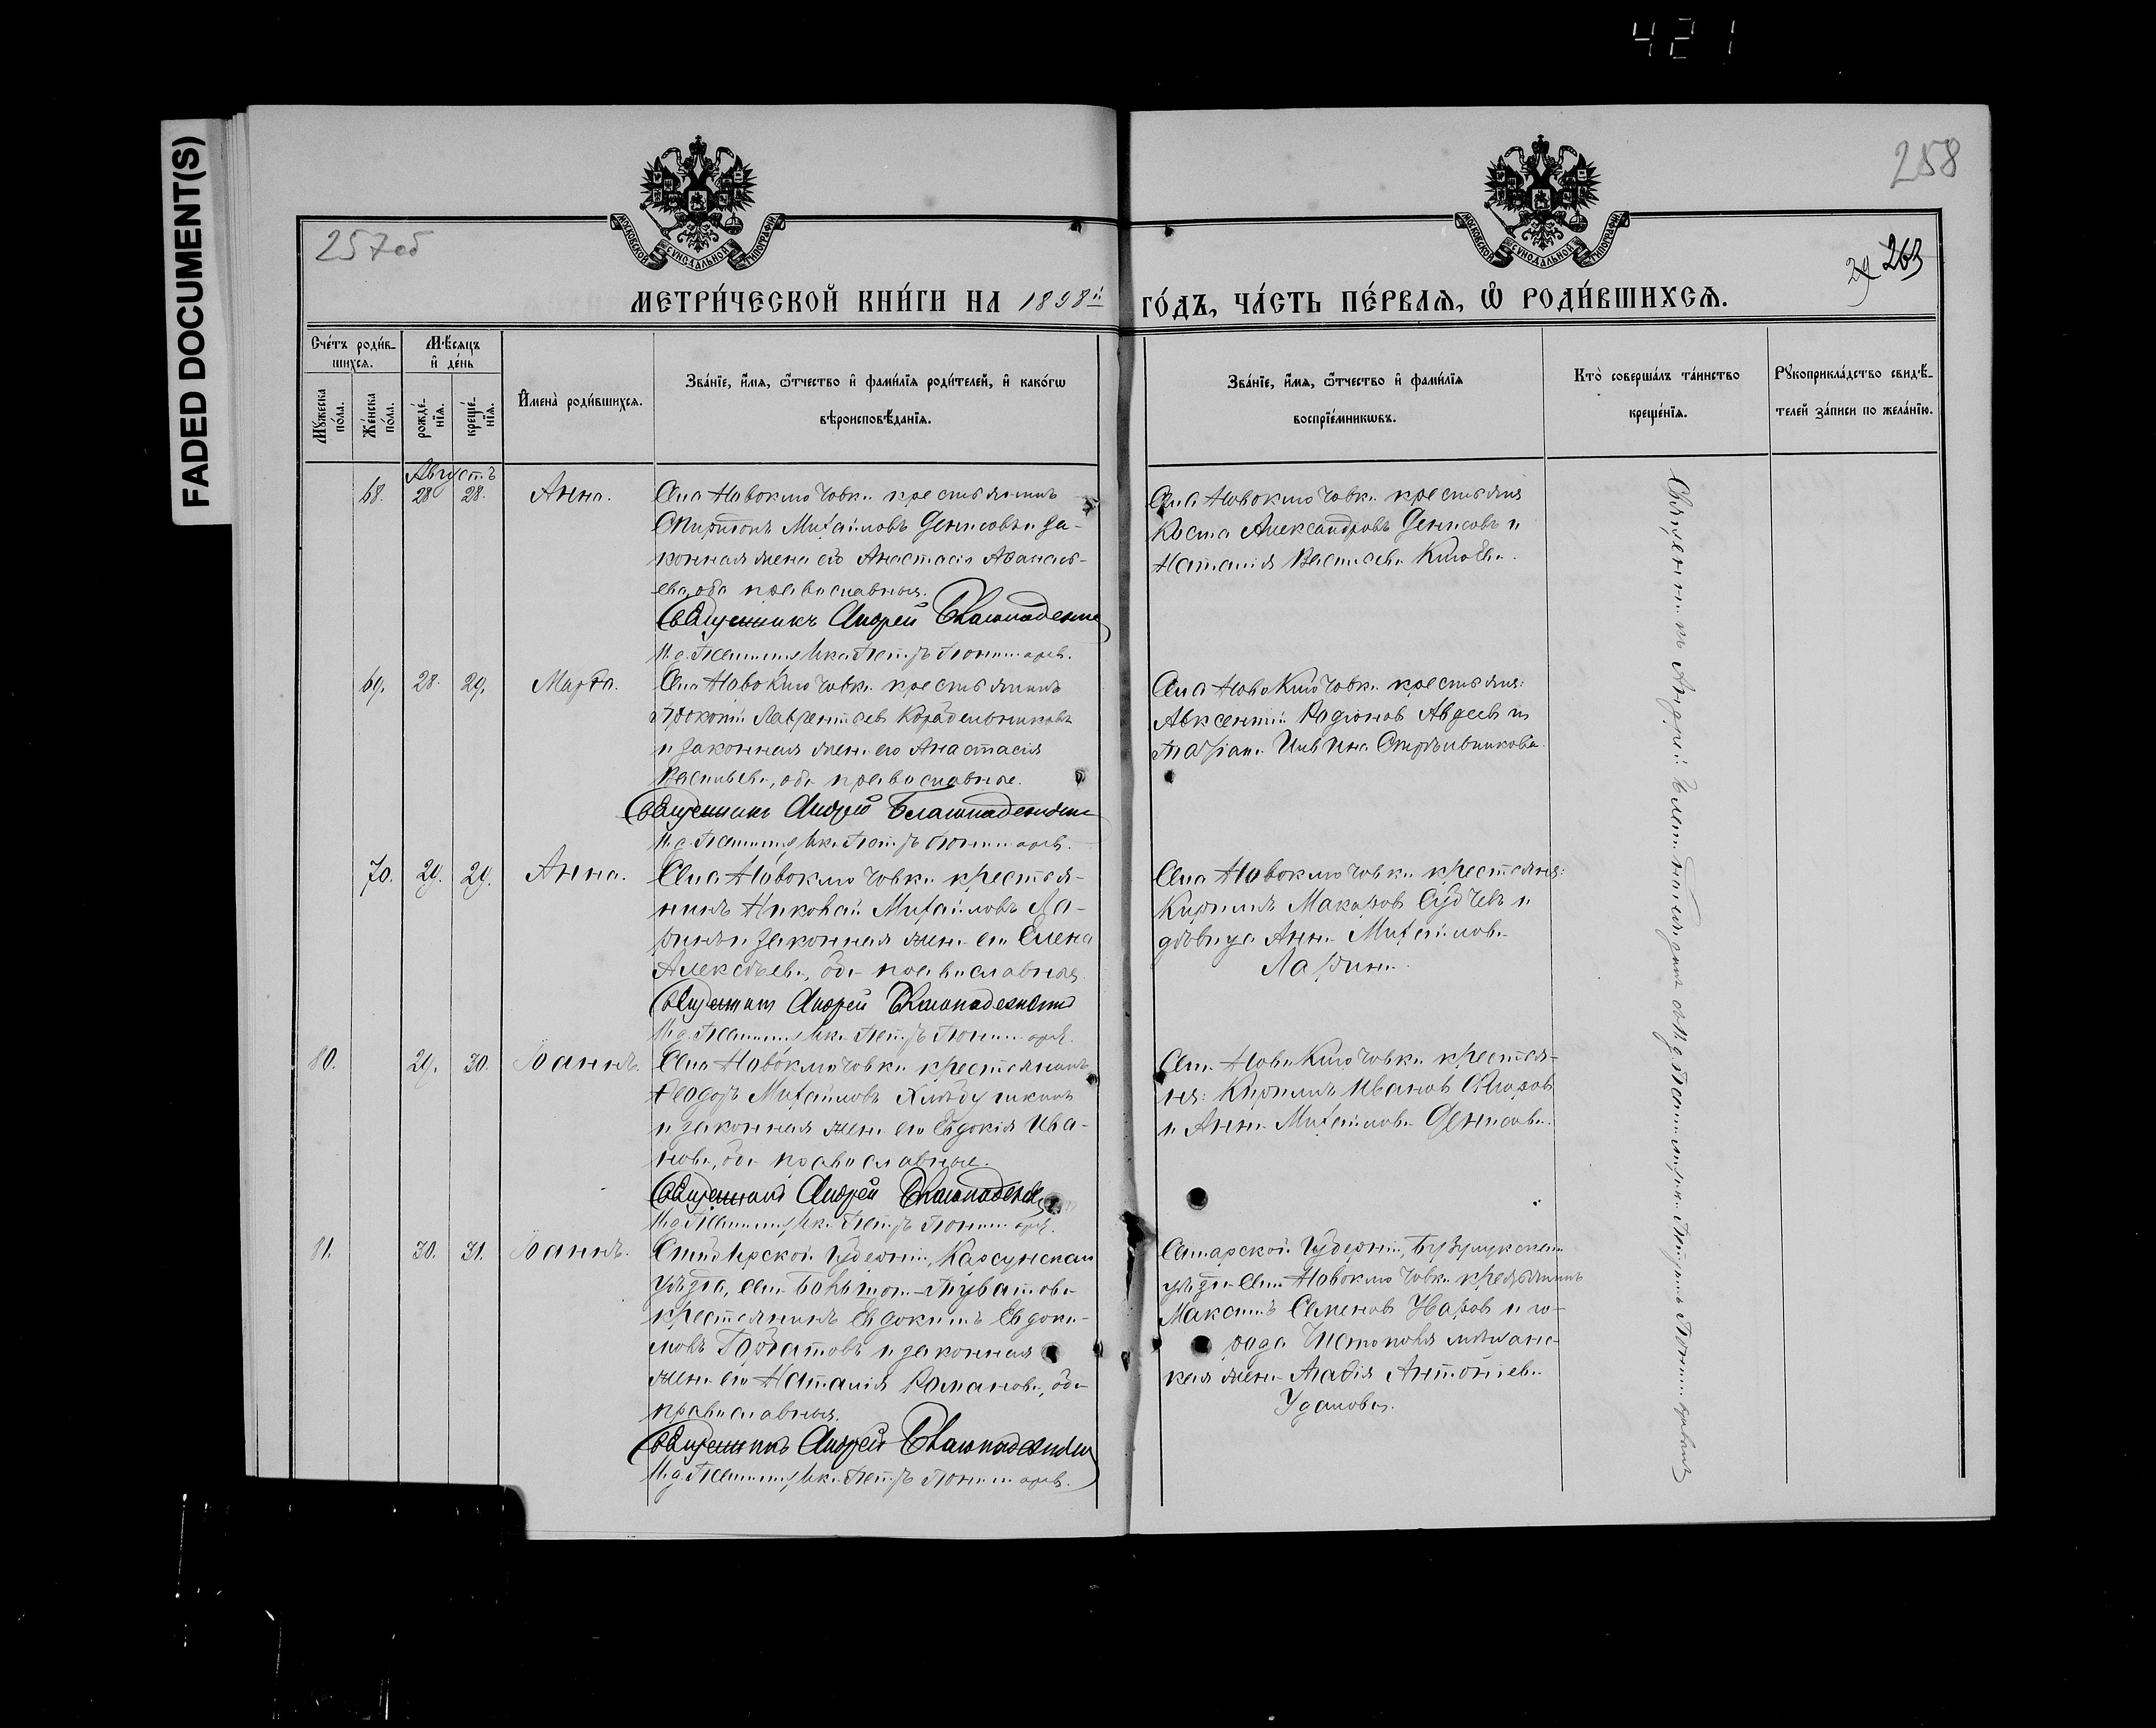 421
FADED DOCUMENT(S)
258
257об
29 263
МОСКОВСКОЙ СѴНОДАЛЬНОЙ ТИПОГРАФІИ
МОСКОВСКОЙ СѴНОДАЛЬНОЙ ТИПОГРАФІИ
МЕТРИ́ЧЕСКОЙ КНИ́ГИ НА 1898й ГО́ДЪ, ЧА́СТЬ ПЕ́РВАѦ, Ѿ РОДИ́ВШИХСѦ.
Сче́тъ роди́в-
шихсѧ.
Мꙋжеска по́ла.
Же́нска по́ла.
Мѣсѧцъ
и҆ де́нь
рожде́-
нїѧ.
креще́-
нїѧ.
И҆мена̀ роди́вшихсѧ.
Зва́нїе, и҆́мѧ, ѻ҆́тчество и҆ фами́лїѧ роди́телей, и҆ како́гѡ
вѣроисповѣ́данїѧ.
Зва́нїе, и҆́мѧ, ѻ҆́тчество и҆ фами́лїѧ
воспрїе́мникѡвъ.
Кто̀ соверша́лъ та́инство
креще́нїѧ.
Рꙋкоприкла́дство свидѣ́-
телей за́писи по жела́нїю.
Августъ
68. 28 28. Анна.
Села Новоключовки крестьянинъ
Спиридонъ Михайловъ Денисовъ и за-
конная жена его Анастасія Аѳанась-
ева, оба православныя.
Священникъ Андрей
Села Новоключовки крестьяня
Косма Александровъ Денисовъ и
Наталія Васильева
69. 28. 29. Марѳа.
Села Новоключовки крестьянинъ
Прокопій Лаврентьевъ Корабельниковъ
и законная жена его Анастасія
Васильева, оба православные.
Священникъ Андрей
Села Новоключовки крестьяня:
Авксентій Родіоновъ Авдеевъ и
70. 29. 29. Анна.
Села Новоключовки крестья-
нинъ Николай Михайловъ Ла-
ринъ и законная жена его Елена
Алексѣева, оба православныя.
Священникъ Андрей
Села Новоключовки крестьяня:
Кириллъ Макаровъ и
дѣвица Анна Михайлова
Ларина.
80. 29. 30. Іоаннъ.
Села Новоключовки крестьянинъ
Ѳеодоръ Михайловъ
и законная жена его Евдокія Ива-
нова, оба православные.
Священникъ Андрей
Села Новоключовки крестья-
ня: Кириллъ Ивановъ
и Анна Михайлова Денисова.
81. 30. 31. Іоаннъ.
Симбирской Губерніи, Карсунскаго
уѣзда, села
крестьянинъ Евдокимъ Евдоки-
мовъ Горбатовъ и законная
жена его Наталія Романова, оба
православныя.
Священникъ Андрей
Самарской Губерніи, Бузулукскаго
уѣзда села Новоключовки крестьянинъ
Максимъ Семеновъ Уваровъ и го-
рода мѣщанс-
кая жена Агаѳія Антоніева
Удалова.
Священникъ Андрей